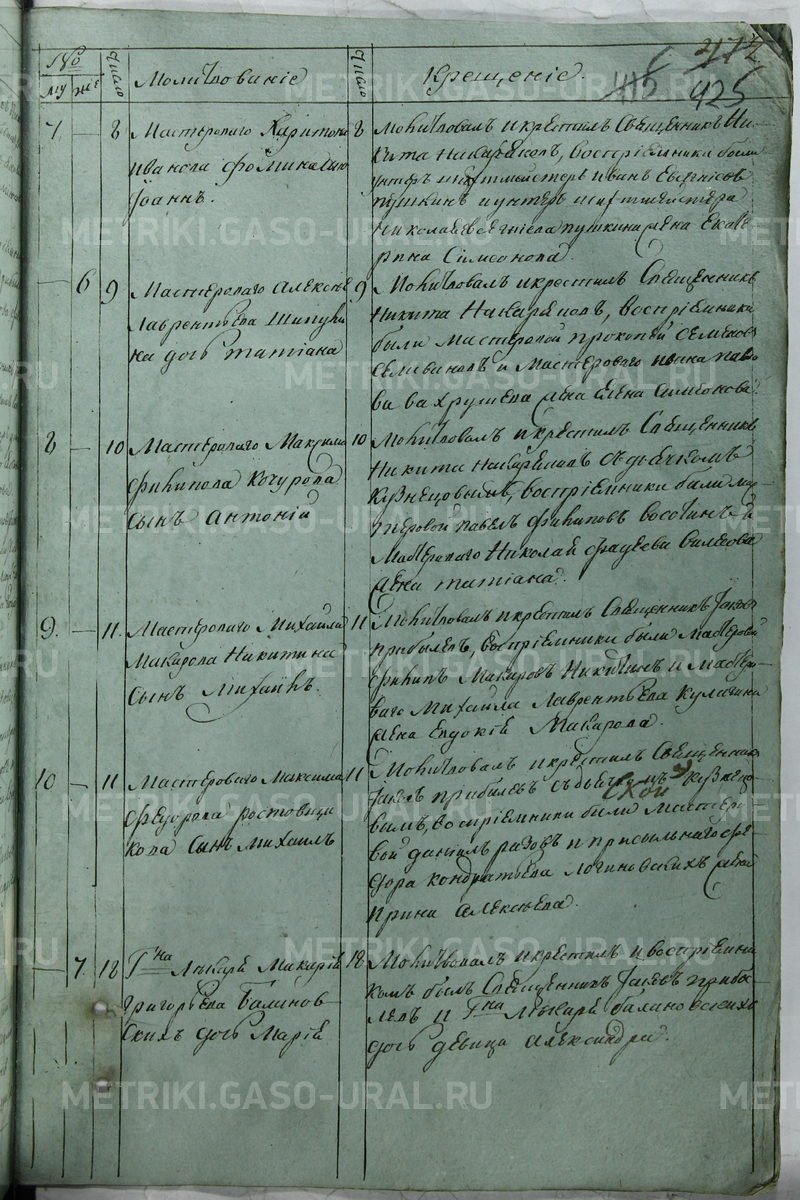 No
му же
число
Молитвованіе
число
Крещеніе.
415 425
7 — 8
Мастероваго Харитона
Иванова Фомина сынъ
Іоаннъ.
8
Молитвовалъ и крестилъ Священникъ Ни-
кита Напаренковъ, воспріемники были
унтеръ шихтмейстеръ Иванъ
Пушкинъ и унтеръ шихтмейстера
Николая Пушкина жена Екате
рина Симеонова.
— 6 9
Мастероваго Алексѣя
Лаврентьева Шипули
на дочь Татіана
9
Молитвовалъ и крестилъ Священникъ
Никита, воспріемники
были мастеровой Прокопій Семеновъ
Селивановъ и мастероваго Ивана Павло
ва Вахрушева жена Елена Симеонова.
8 — 10
Мастероваго Максима
Филипова Кочурова
сынъ Антоній
10
Молитвовалъ и крестилъ Священникъ
Никита съ дьячкомъ
Кузнецовымъ, воспріемники были мас
теровой Павелъ Филиповъ и
Мастероваго Николая Фадеева
жена Татіана.
9. — 11.
Мастероваго Михайла
Макарова Никитина
сынъ Михаилъ.
11
Молитвовалъ и крестилъ Священникъ Іаковъ
Прибылевъ, воспріемники были мастеровой
Филипъ Макаровъ Никитинъ и масте-
роваго Михайла Лаврентьева Кулагина
жена Евдокія Макарова.
10 — 11
Мастероваго Максима
Федорова Ростовщи
кова сынъ Михаилъ
11
Молитвовалъ и крестилъ Священникъ
Іаковъ Прибылевъ съ дьячкомъ Кузнецо-
вымъ, воспріемники были мастеро
вой Даніилъ и присыльнаго Фе-
дора Кондратьева Логиновскихъ жена
Ирина Алексѣева.
— 7. 18
Гна Лѣкаря Макарія
Григорьева Балинов-
скихъ дочь Марія
18
Молитвовалъ и крестилъ и воспріемни
комъ былъ Священникъ Іаковъ Прибы-
левъ и Гна Лѣкаря Балиновскихъ
дочь девица Александра.
METRIKI.GASO-URAL.RU